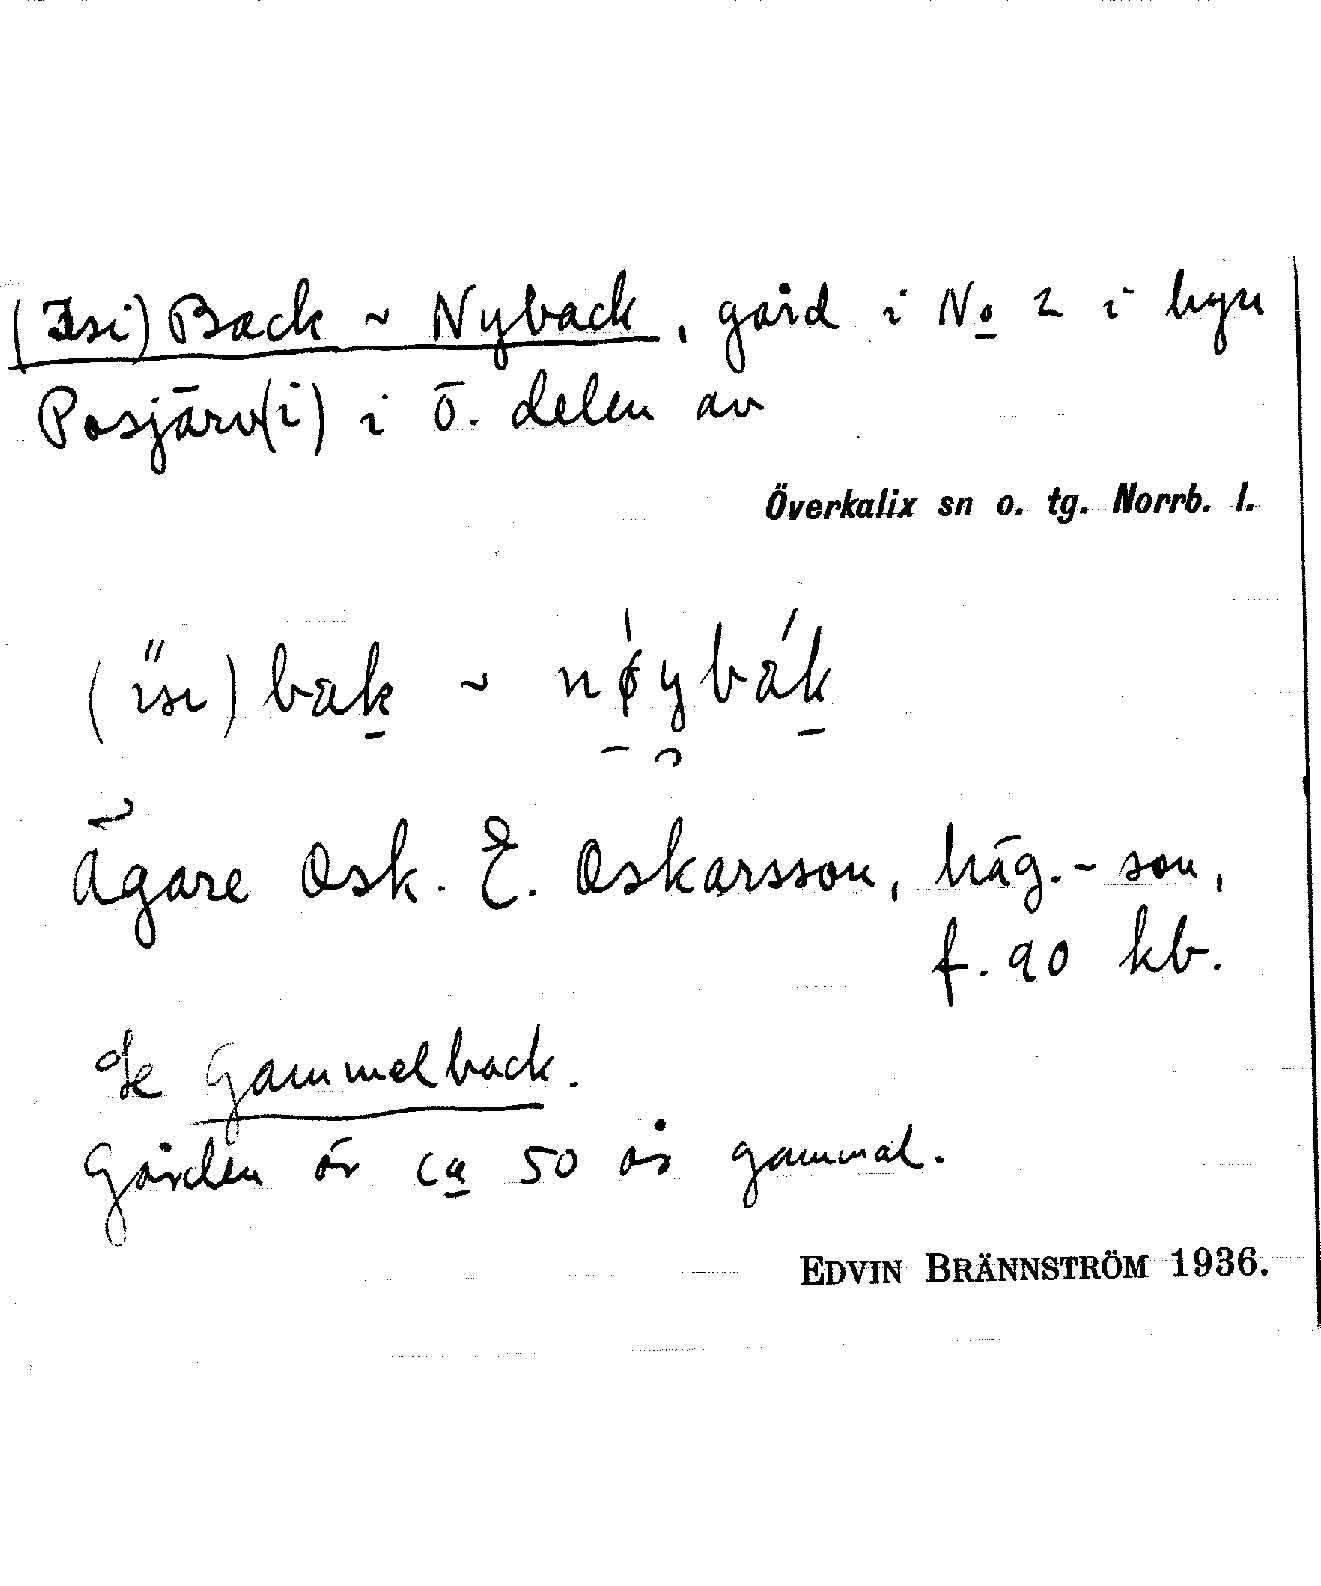 (Isi) Back ~ Nyback, gård i No 2 i byn
Posjärv(i) i ö. delen av
Överkalix sn o. tg. Norrb. l.
(ı̈sı) bak ~ nøybák
Ägare Osk. E. Oskarsson, häg.-son,
f. 90 kb.
Gammelback.
Gården är ca 50 år gammal.
EDVIN BRÄNNSTRÖM 1936.